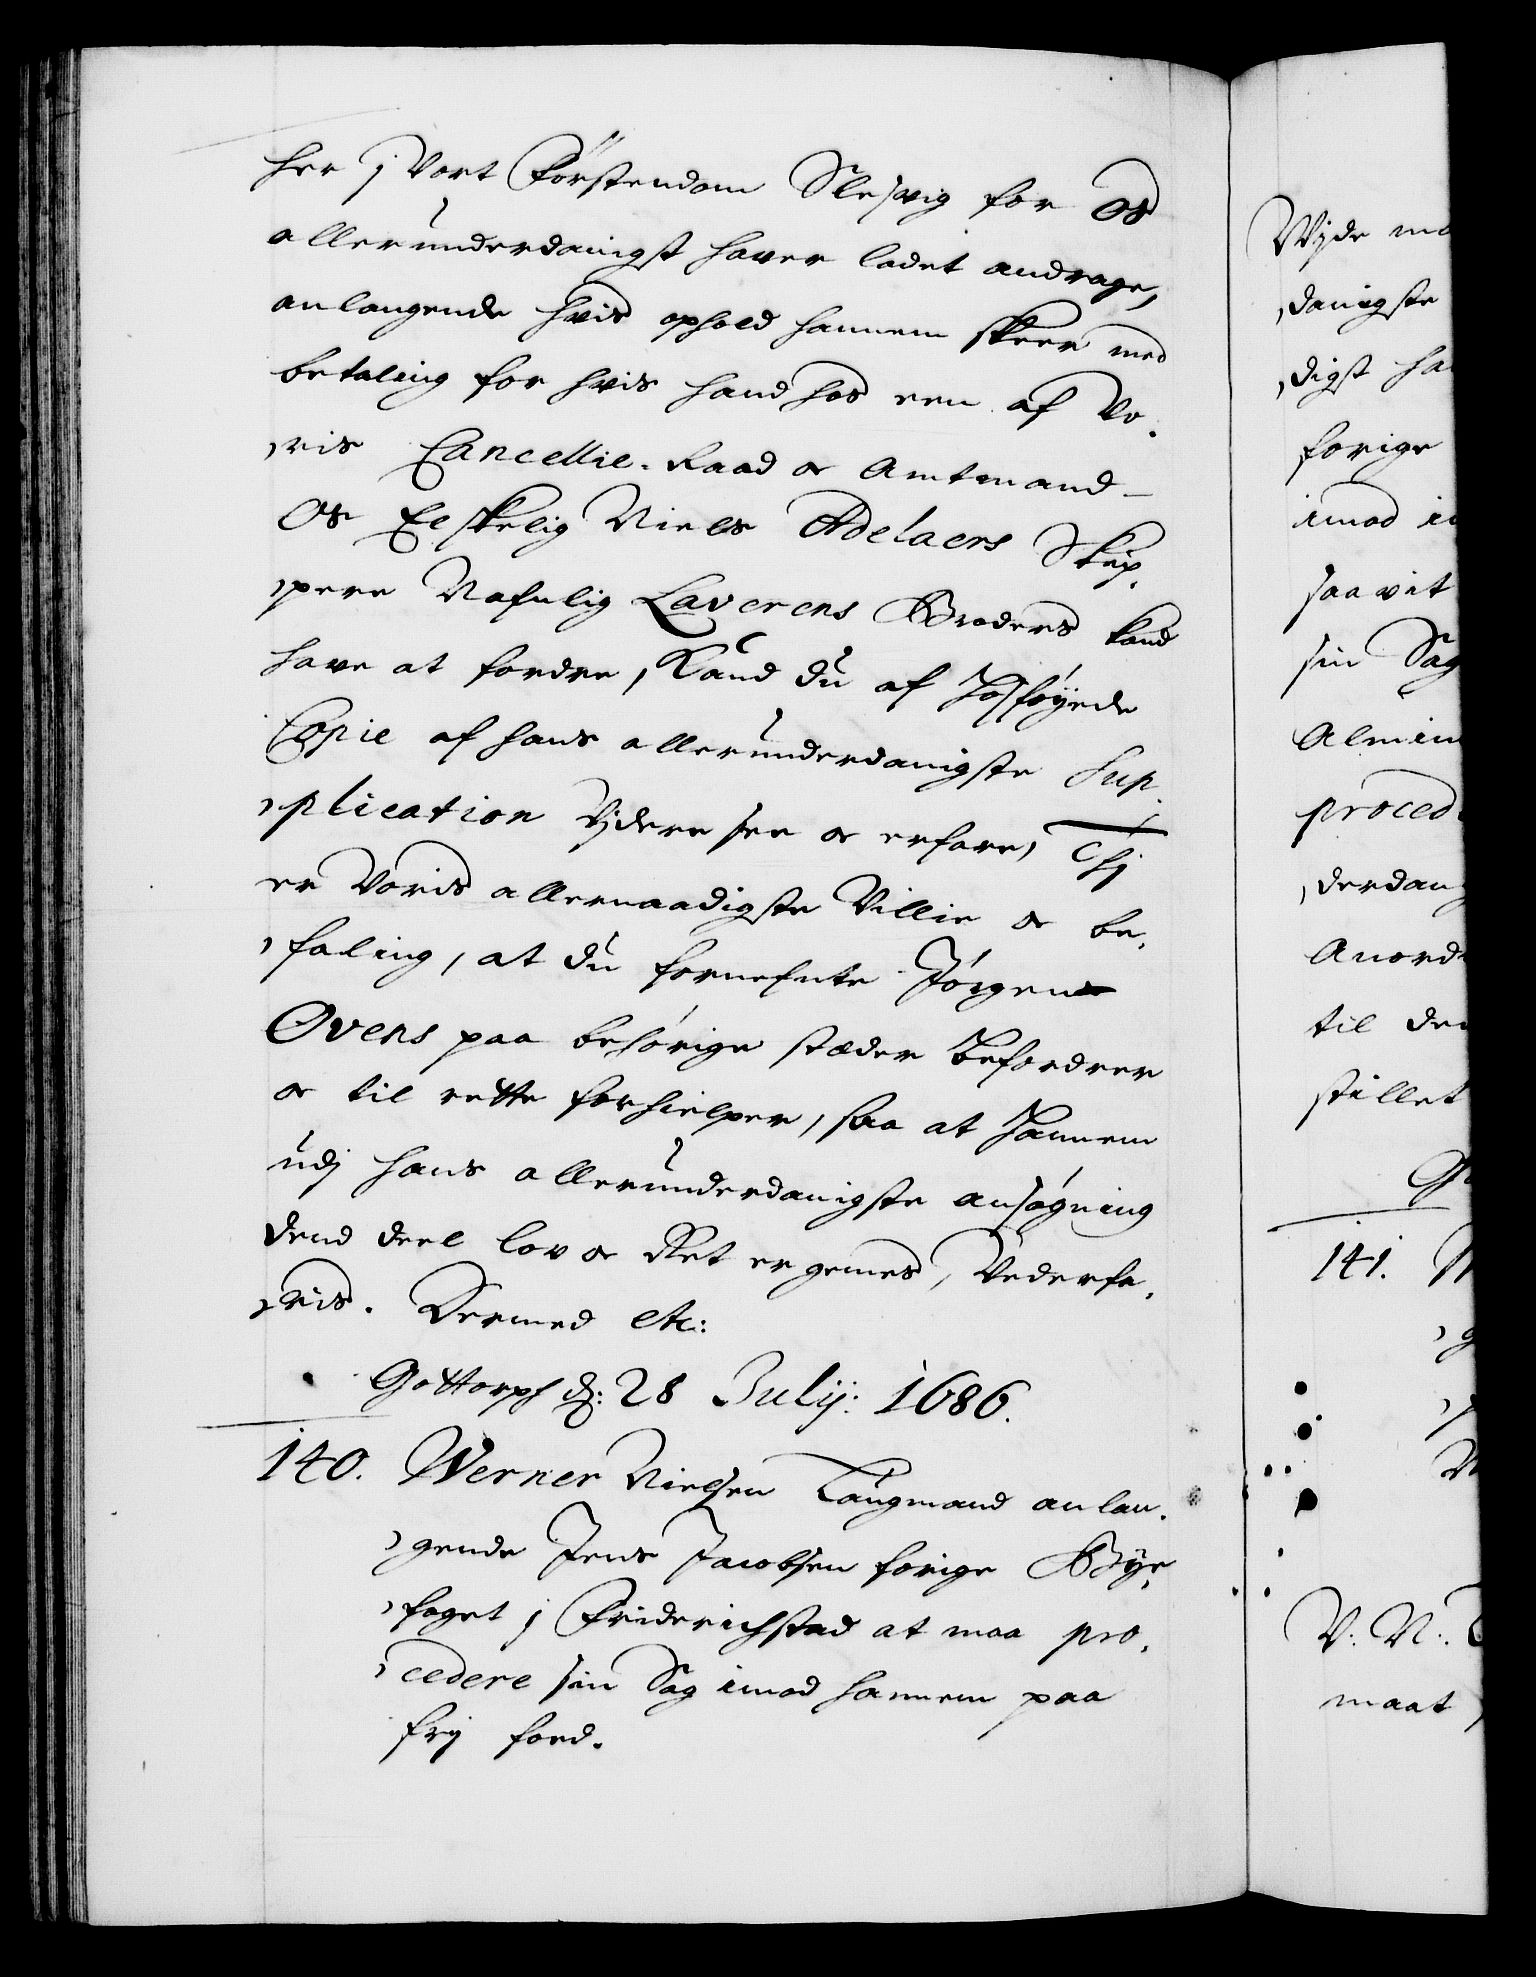 her j Vort Förstendom Slesvig for Os
allerunderdanigst haver ladet andrage,
anlangende hvis ophold hannem skeer med
betaling for hvis hand hos een af Vo,
,ris Cancellie-Raad oc Amtmand-
Os Elskelig Niels Adelaers Skip,
,pere Nafnlig Laverens Broders kand
have at fordre, Kand du af hosföyede
Copie af hans allerunderdanigste Sup,
,plication Vjdere see oc erfare, Thj
er Voris allernaadigste Villie oc be,
,faling, at du fornefnte Jörgen
Ovens paa behörige stæder befordrer
oc til rette forhielper, saa at hannem
udj hans allerunderdanigste ansögning
dend deel lov oc Ret er gemes, Vederfa,
,ris. Dermed etc:
Gottorph d: 28 Julij: 1686.
140. Werner Nielsen Laugmand anlan,
,gende Jens Jacobsen forige Bye,
,foget j Friderichstad at maa pro,
,cedere sin Sag imod hannem paa
frij fod.
Wjde
,danigste
,digst
forige
imod
saavit
sin Sag
Almin
proced
,derdan
Anord
til
stillet
141.
V: N:
maat